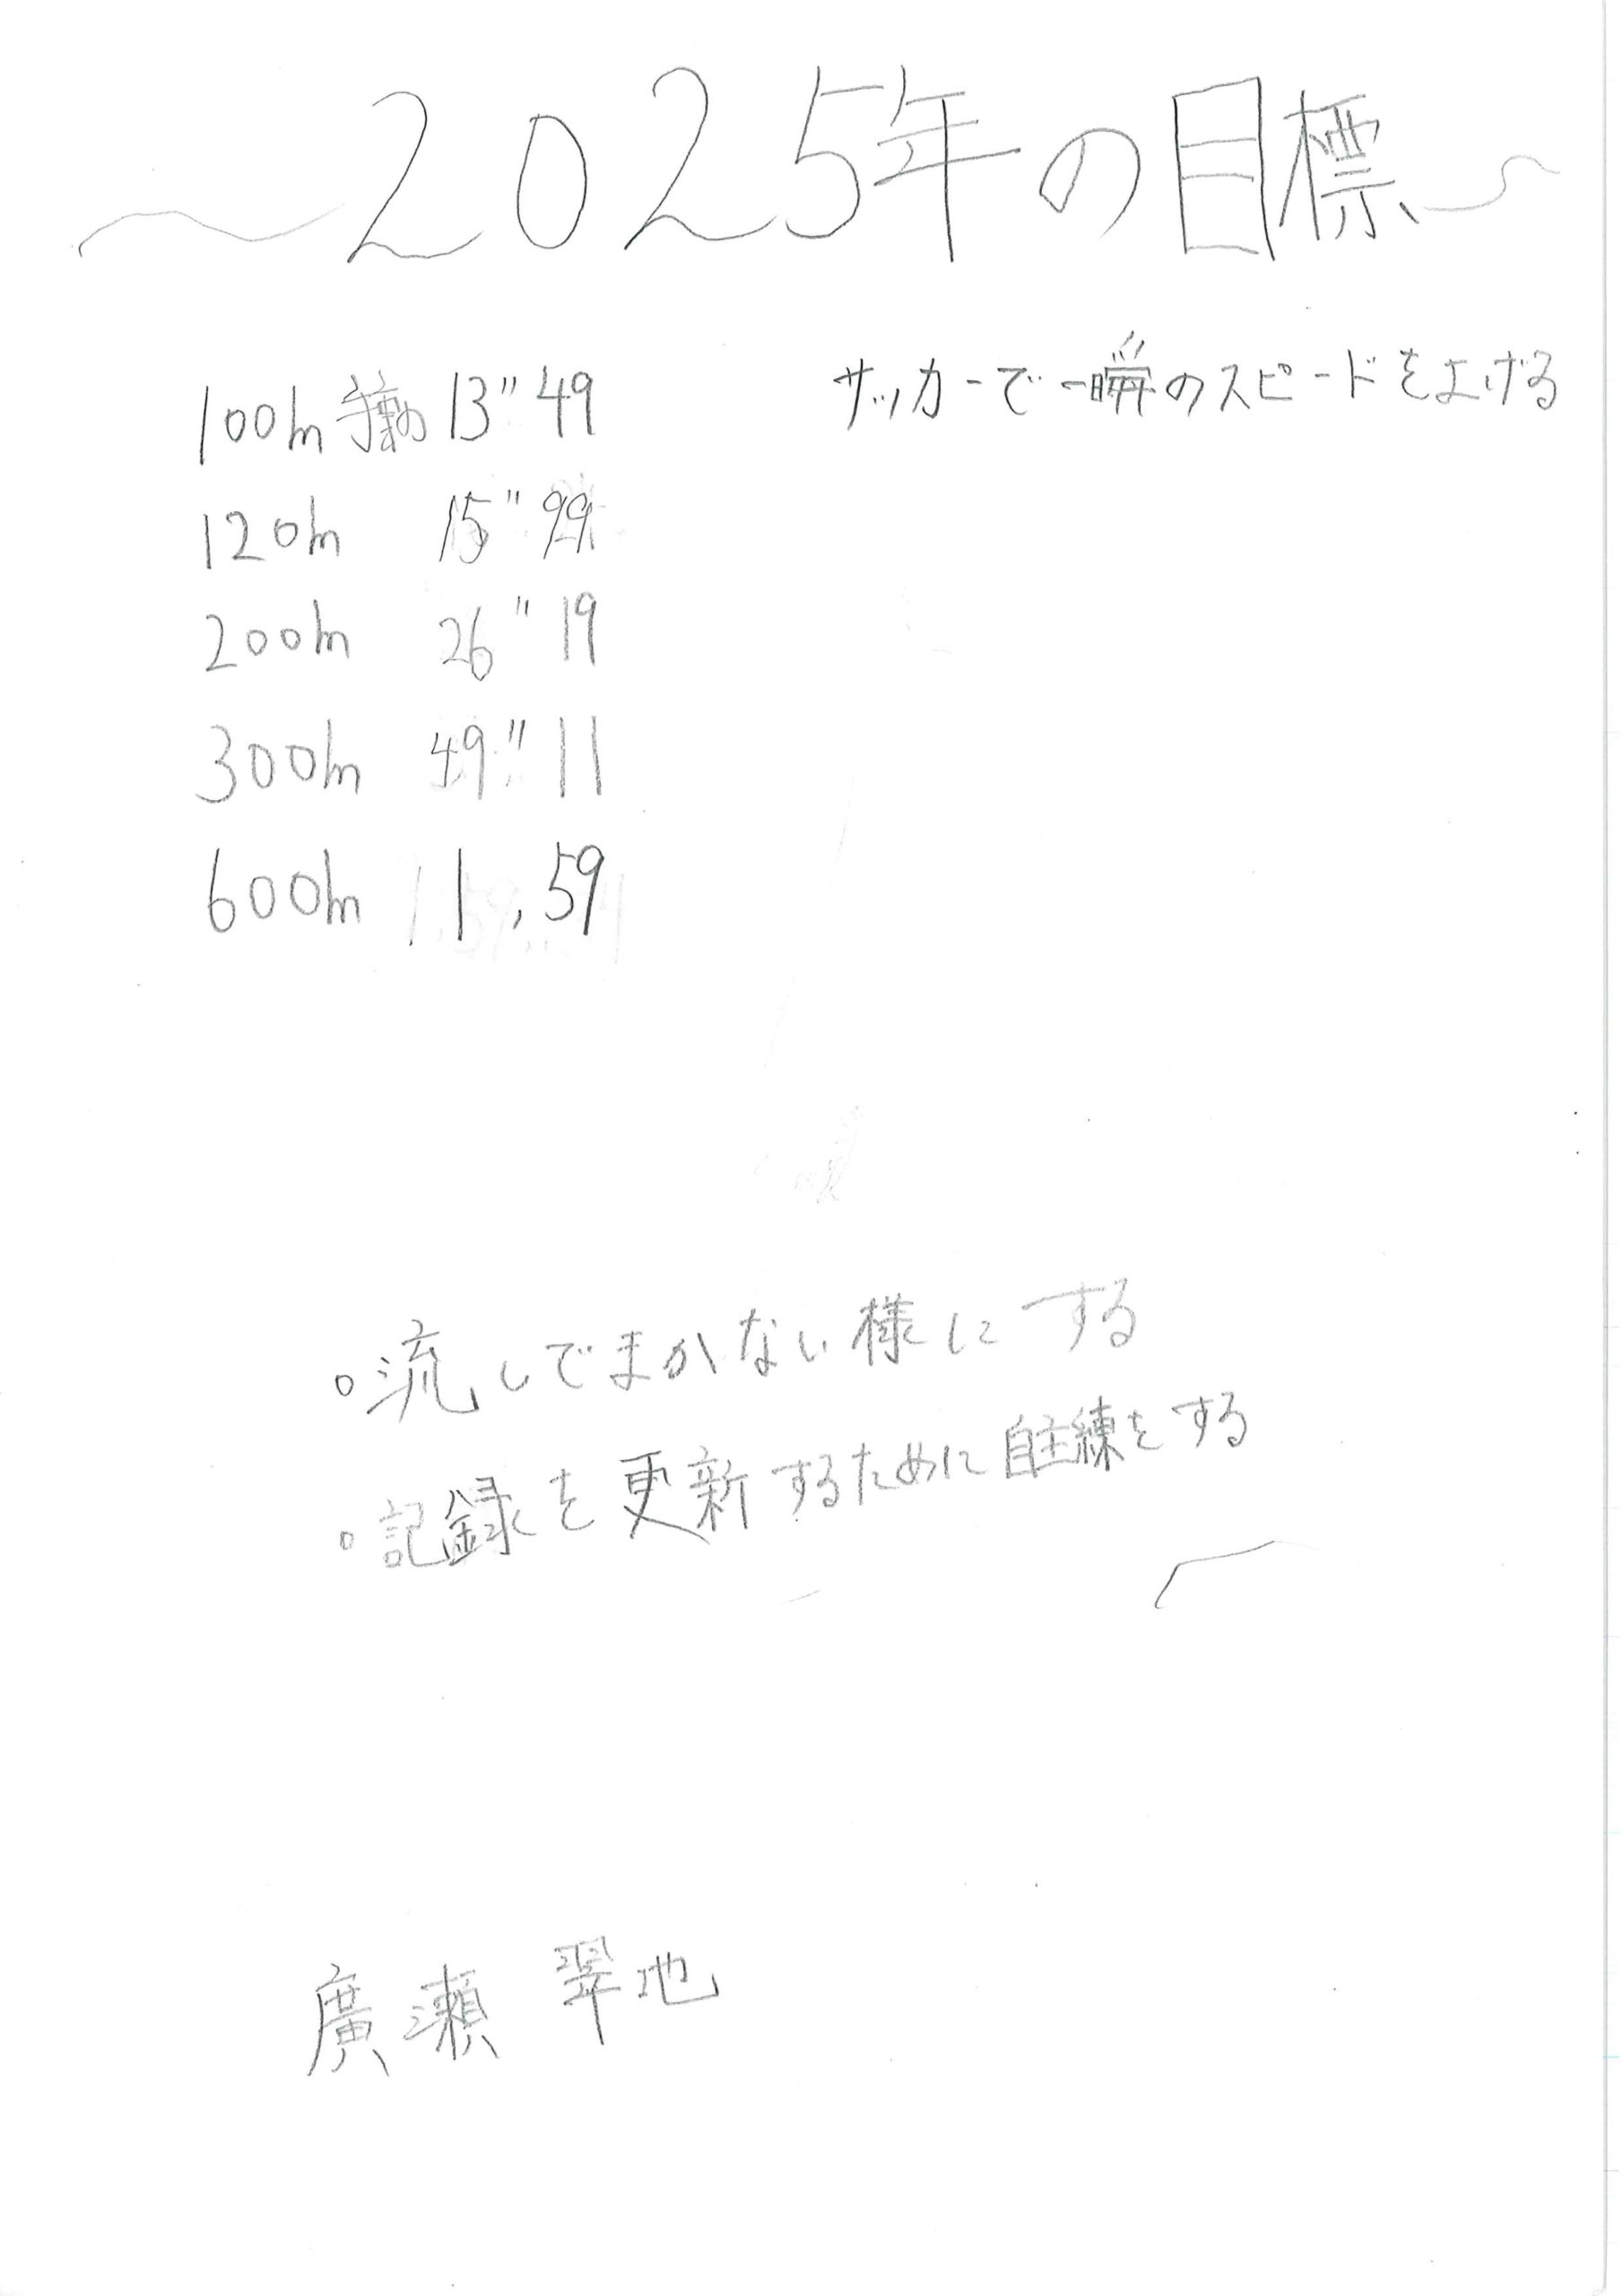 ~2025年の目標~
100m 手動 13"49
サッカーで一瞬のスピードを上げる
120m 15"99
200m 26"19
300m 49"11
600m 1,59
。流しでまかない様にする
。記録を更新するために自主練をする
廣瀬 翠地